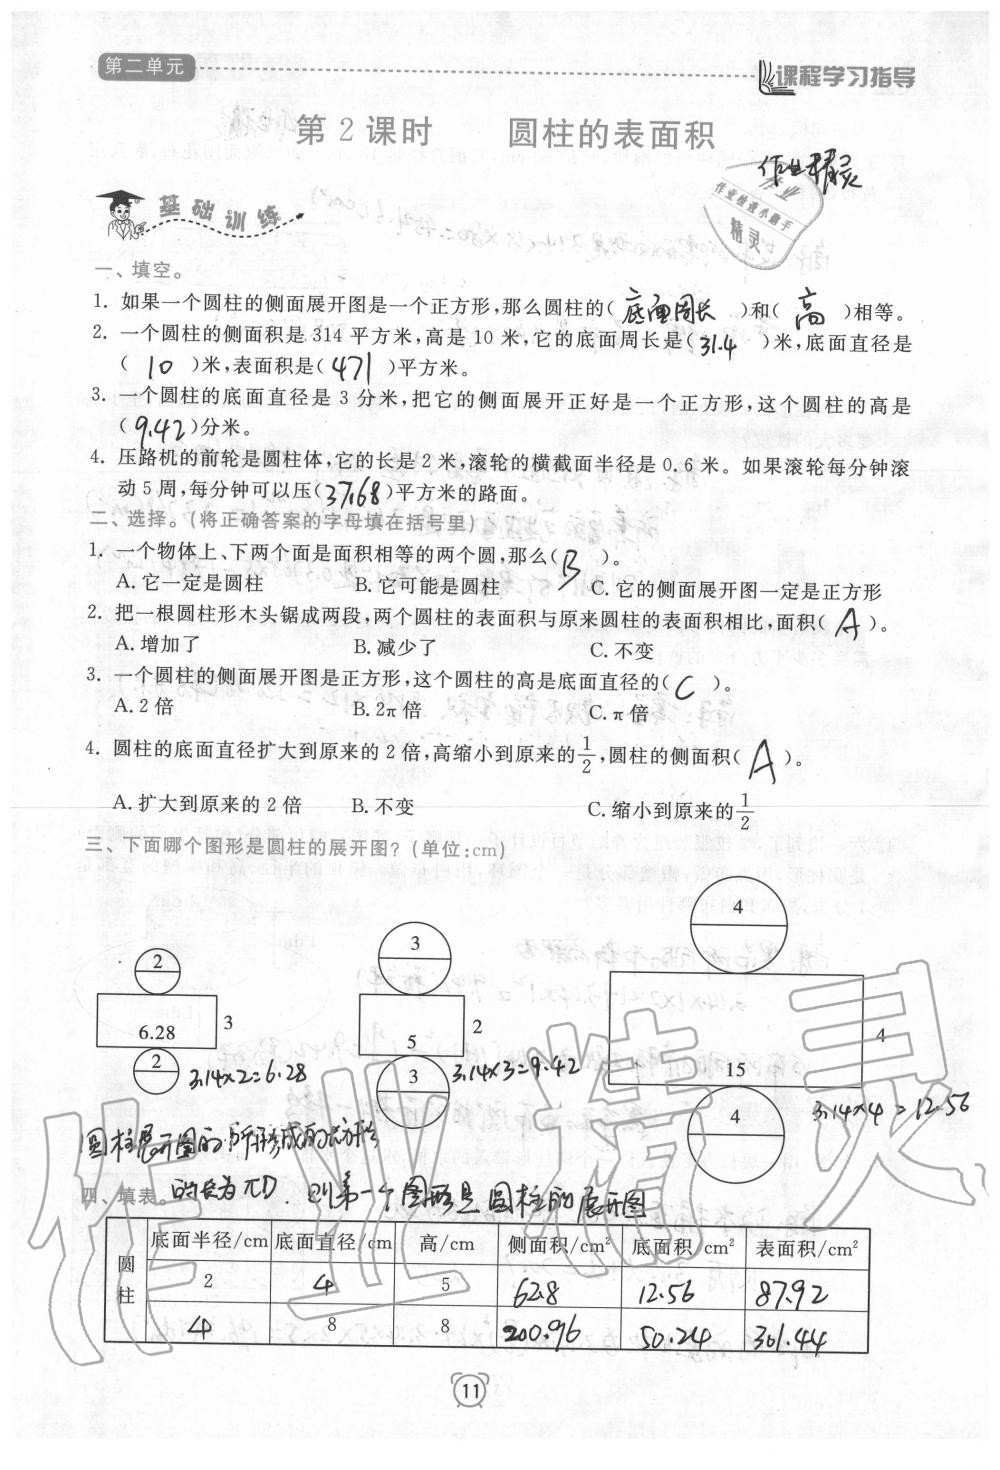 第二单元
课程学习指导
第 2 课时 圆柱的表面积
作业精灵
作业
作业检查小助手
精灵
基础训练
一、填空。
1. 如果一个圆柱的侧面展开图是一个正方形,那么圆柱的( 底面周长 )和( 高 )相等。
2. 一个圆柱的侧面积是 314 平方米,高是 10 米,它的底面周长是( 31.4 )米,底面直径是
( 10 )米,表面积是( 471 )平方米。
3. 一个圆柱的底面直径是 3 分米,把它的侧面展开正好是一个正方形,这个圆柱的高是
( 9.42 )分米。
4. 压路机的前轮是圆柱体,它的长是 2 米,滚轮的横截面半径是 0. 米。如果滚轮每分钟滚
动 5 周,每分钟可以压( 37.68 )平方米的路面。
二、选择。(将正确答案的字母填在括号里)
1. 一个物体上、下两个面是面积相等的两个圆,那么( B )。
A. 它一定是圆柱 B. 它可能是圆柱 C. 它的侧面展开图一定是正方形
2. 把一根圆柱形木头锯成两段,两个圆柱的表面积与原来圆柱的表面积相比,面积( A )。
A. 增加了 B. 减少了 C. 不变
3. 一个圆柱的侧面展开图是正方形,这个圆柱的高是底面直径的( C )。
A. 2 倍 B. 2π 倍 C. π 倍
4. 圆柱的底面直径扩大到原来的 2 倍,高缩小到原来的1/2,圆柱的侧面积( A )。
A. 扩大到原来的 2 倍 B. 不变 C. 缩小到原来的1/2
三、下面哪个图形是圆柱的展开图?(单位:cm)
2 3 4
6.28 3 5 2 15 4
2 3 4
3.14×2=6.28 3.14×3=9.42 3.14×4=12.56
圆柱展开图的所形成的长方形
四、填表。 的长为πD. 则第一个图形是圆柱的展开图
圆柱 底面半径/cm 底面直径/cm 高/cm 侧面积/cm² 底面积/cm² 表面积/cm²
2 4 5 62.8 12.56 87.92
4 8 8 200.96 50.24 301.44
作业精灵
11